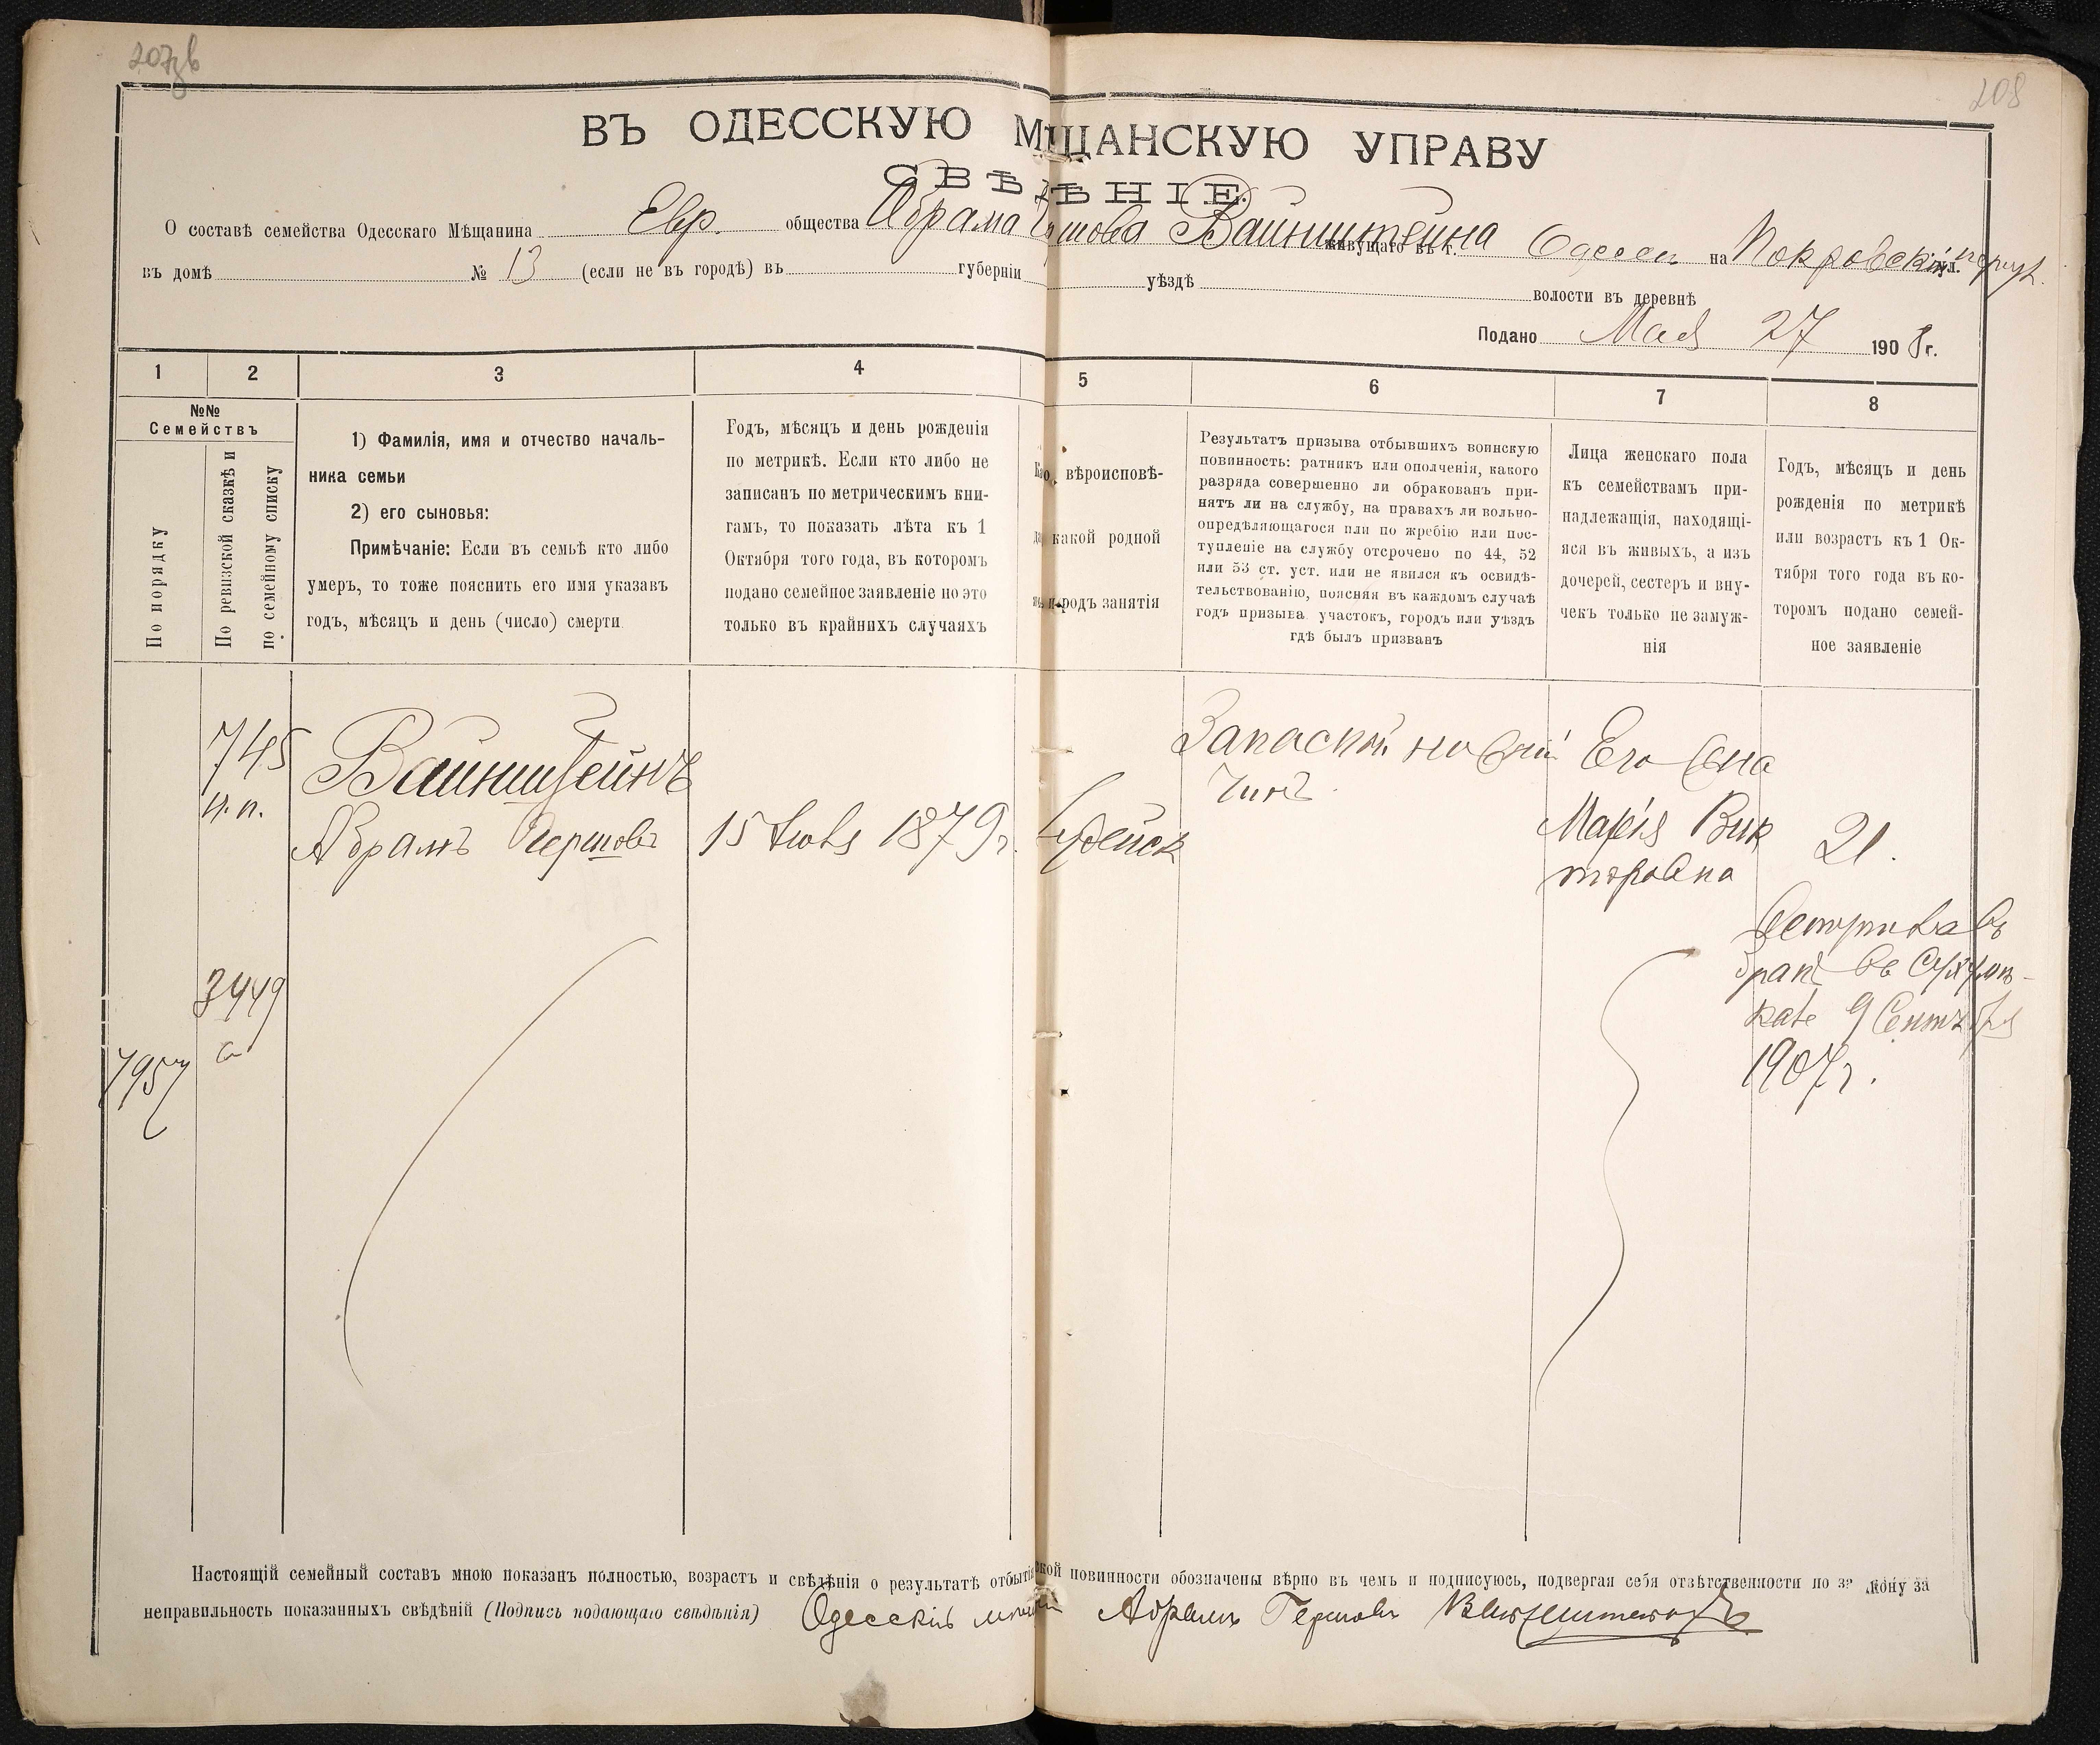 207об
208
ВЪ ОДЕССКУЮ МѢЩАНСКУЮ УПРАВУ
СВѢДѢНІЕ.
О составѣ семейства Одесскаго Мѣщанина Евр. общества Абрама Гершова Вайнштейна живущаго въ г. Одессѣ на Покровскій ул. переул.
въ домѣ № 13 (если не въ городѣ) въ губерніи уѣздѣ волости въ деревнѣ
Подано Мая 27 1908 г.
1 2 3 4 5 6 7 8
№№
Семействъ
По порядку
По ревизской сказкѣ и
по семейному списку
1) Фамилія, имя и отчество началь-
ника семьи
2) его сыновья:
Примѣчаніе: Если въ семьѣ кто либо
умеръ, то тоже пояснить его имя указавъ
годъ, мѣсяцъ и день (число) смерти
Годъ, мѣсяцъ и день рожденія
по метрикѣ. Если кто либо не
записанъ по метрическимъ кни-
гамъ, то показать лѣта къ 1
Октября того года, въ которомъ
подано семейное заявленіе но это
только въ крайнихъ случаяхъ
вѣроисповѣ-
какой родной
и родъ занятія
Результатъ призыва отбывшихъ воинскую
повинность: ратникъ или ополченія, какого
разряда совершенно ли обракованъ при-
нятъ ли на службу, на правахъ ли вольно-
опредѣляющагося или по жребію или пос-
тупленіе на службу отсрочено по 44, 52
или 53 ст. уст. или не явился къ освидѣ-
тельствованію, поясняя въ каждомъ случаѣ
годъ призыва участокъ, городъ или уѣздъ
гдѣ былъ призванъ
Лица женскаго пола
къ семействамъ при-
надлежащія, находящі-
яся въ живыхъ, а изъ
дочерей, сестеръ и вну-
чекъ только не замуж-
нія
Годъ, мѣсяцъ и день
рожденія по метрикѣ
или возрастъ къ 1 Ок-
тября того года въ ко-
торомъ подано семей-
ное заявленіе
745
н.п.
Вайнштейнъ
Абрамъ Гершовъ
15 Іюля 1879 г.
Еврейск
Запасной нижній
чинъ
Его жена
Марія Вик
торовна
21.
Вступила въ
бракъ въ Сухумъ-
кале 9 Сентября
1907 г.
3449
с
7957
Настоящій семейный составъ мною показанъ полностью, возрастъ и свѣдѣнія о результатѣ отбытія ской повинности обозначены вѣрно въ чемъ и подписуюсь, подвергая себя отвѣтственности по закону за
неправильность показанныхъ свѣдѣній (Подпись подающаго свѣдѣнія) Одесскій мѣщан Абрамъ Гершовъ Вайнштейнъ